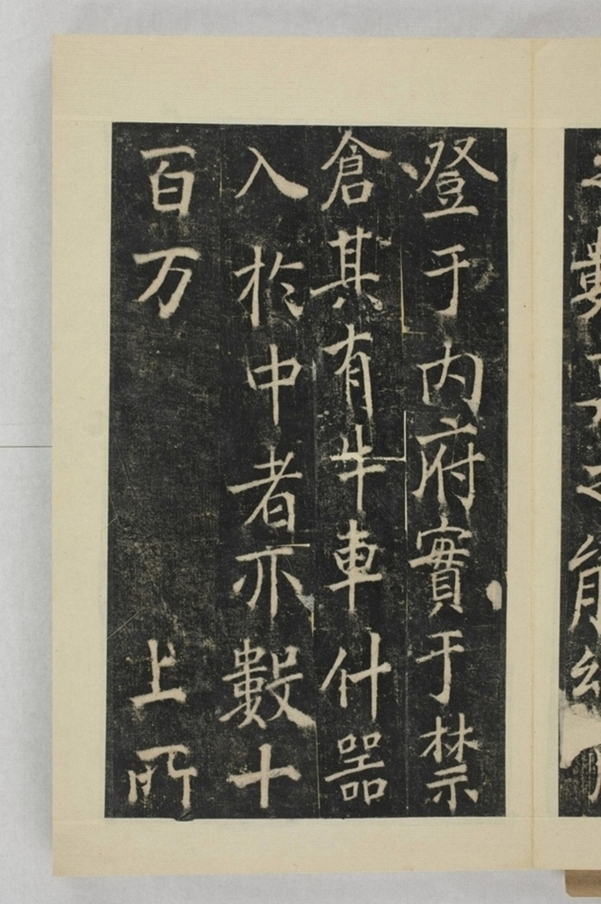 登于内府實于禁
倉其有牛車什器
入於中者亦數十
百万　上所